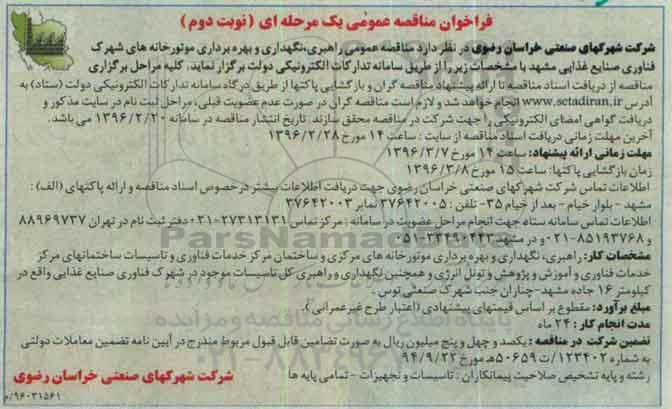 فراخوان مناقصه عمومی یک مرحله ای (نوبت دوم)
شرکت شهرکهای صنعتی خراسان رضوی در نظر دارد مناقصه عمومی راهبری،نگهداری و بهره برداری موتورخانه های شهرک
فناوری صنایع غذایی مشهد با مشخصات زیر را از طریق سامانه تدارکات الکترونیکی دولت برگزار نماید. کلیه مراحل برگزاری
مناقصه از دریافت اسناد مناقصه تا ارائه پیشنهاد مناقصه گران و بازگشایی پاکتها از طریق درگاه سامانه تدارکات الکترونیکی دولت (ستاد) به
آدرس www.sctadiran.ir انجام خواهد شد و لازم است مناقصه گران در صورت عدم عضویت قبلی، مراحل ثبت نام در سایت مذکور و
دریافت گواهی امضای الکترونیکی را جهت شرکت در مناقصه محقق سازند. تاریخ انتشار مناقصه در سامانه ۱۳۹۶/۲/۲۰ می باشد.
آخرین مهلت زمانی دریافت اسناد مناقصه از سایت : ساعت ۱۴ مورخ ۱۳۹۶/۲/۲۸
مهلت زمانی ارائه پیشنهاد: ساعت ۱۴ مورخ ۱۳۹۶/۳/۷
زمان بازگشایی پاکتها: ساعت ۱۵ مورخ ۱۳۹۶/۳/۸
اطلاعات تماس شرکت شهرکهای صنعتی خراسان رضوی جهت دریافت اطلاعات بیشتر درخصوص اسناد مناقصه و ارائه پاکتهای (الف) :
مشهد - بلوار خیام - بعد از خیام ۳۵- تلفن : ۳۷۶۴۲۰۰۵ نمابر ۳۷۶۴۲۰۰۳
اطلاعات تماس سامانه ستاد جهت انجام مراحل عضویت در سامانه : مرکز تماس ۲۷۳۱۳۱۳۱-۰۲۱ دفتر ثبت نام در تهران ۸۸۹۶۹۷۳۷
و ۸۵۱۹۳۷۶۸-۰۲۱ و در مشهد ۳۳۴۹۰۴۴۳-۰۵۱
مشخصات کار: راهبری، نگهداری و بهره برداری موتورخانه های مرکزی و ساختمان مرکز خدمات فناوری و تاسیسات ساختمانهای مرکز
خدمات فناوری و آموزش و پژوهش و تونل انرژی و همچنین نگهداری و راهبری کل تاسیسات موجود در شهرک فناوری صنایع غذایی واقع در
کیلومتر ۱۶ جاده مشهد-چناران جنب شهرک صنعتی توس .
مبلغ برآورد: مقطوع بر اساس قیمتهای پیشنهادی (اعتبار طرح غیرعمرانی).
مدت انجام کار : ۲۴ ماه
تضمین شرکت در مناقصه : یکصد و چهل و پنج میلیون ریال به صورت تضامین قابل قبول مربوط مندرج در آیین نامه تضمین معاملات دولتی
به شماره ۱۲۳۴۰۲/ت ۵۰۶۵۹ه مورخ ۹۴/۹/۲۲
رشته و پایه تشخیص صلاحیت پیمانکاران : تاسیسات و تجهیزات - تمامی پایه ها
شرکت شهرکهای صنعتی خراسان رضوی
۹۶۰۳۱۵۶۱/م
ParsNamadData
پایگاه اطلاع رسانی مناقصه و مزایده